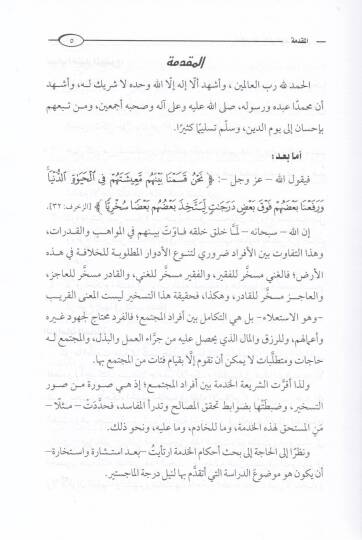 المقدمة
٥
المقدمة
الحمد لله رب العالمين ، وأشهد ألا إله إلا الله وحده لا شريك له، وأشهد
أن محمدًا عبده ورسوله، صلى الله عليه وعلى آله وصحبه أجمعين، ومن تبعهم
بإحسان إلى يوم الدين، وسلّم تسليمًا كثيرًا.
أما بعد:
فيقول الله – عز وجل –: ﴿ نَحْنُ قَسَمْنَا بَيْنَهُم مَّعِيشَتَهُمْ فِي الْحَيَوٰةِ الدُّنْيَا
وَرَفَعْنَا بَعْضَهُمْ فَوْقَ بَعْضٍ دَرَجَٰتٍ لِّيَتَّخِذَ بَعْضُهُم بَعْضًا سُخْرِيًّا ﴾ [الزخرف: ٣٢].
إن الله – سبحانه – لمَّا خلق خلقه فاوَت بينهم في المواهب والقدرات،
وهذا التفاوت بين الأفراد ضروري لتنوع الأدوار المطلوبة للخلافة في هذه
الأرض؛ فالغني مسخَّر للفقير، والفقير مسخَّر للغني، والقادر مسخَّر للعاجز،
والعاجز مسخَّر للقادر، وهكذا، فحقيقة هذا التسخير ليست المعنى القريب
–وهو الاستعلاء– بل هي التكامل بين أفراد المجتمع؛ فالفرد محتاج لجهود غيره
وأعمالهم، وللرزق والمال الذي يحصل عليه من جرَّاء العمل والبذل، والمجتمع له
حاجات ومتطلَّبات لا يمكن أن تقوم إلا بقيام فئات من المجتمع بها.
ولذا أقرَّت الشريعة الخدمة بين أفراد المجتمع؛ إذ هي صورة من صور
التسخير، وضبطَتْها بضوابط تحقق المصالح وتدرأ المفاسد، فحدَّدَتْ –مثلًا–
مَنِ المستحق لهذه الخدمة، وما للخادم، وما عليه، ونحو ذلك.
ونظرًا إلى الحاجة إلى بحث أحكام الخدمة ارتأيتُ –بعد استشارة واستخارة–
أن يكون هو موضوعَ الدراسة التي أتقدَّم بها لنيل درجة الماجستير.